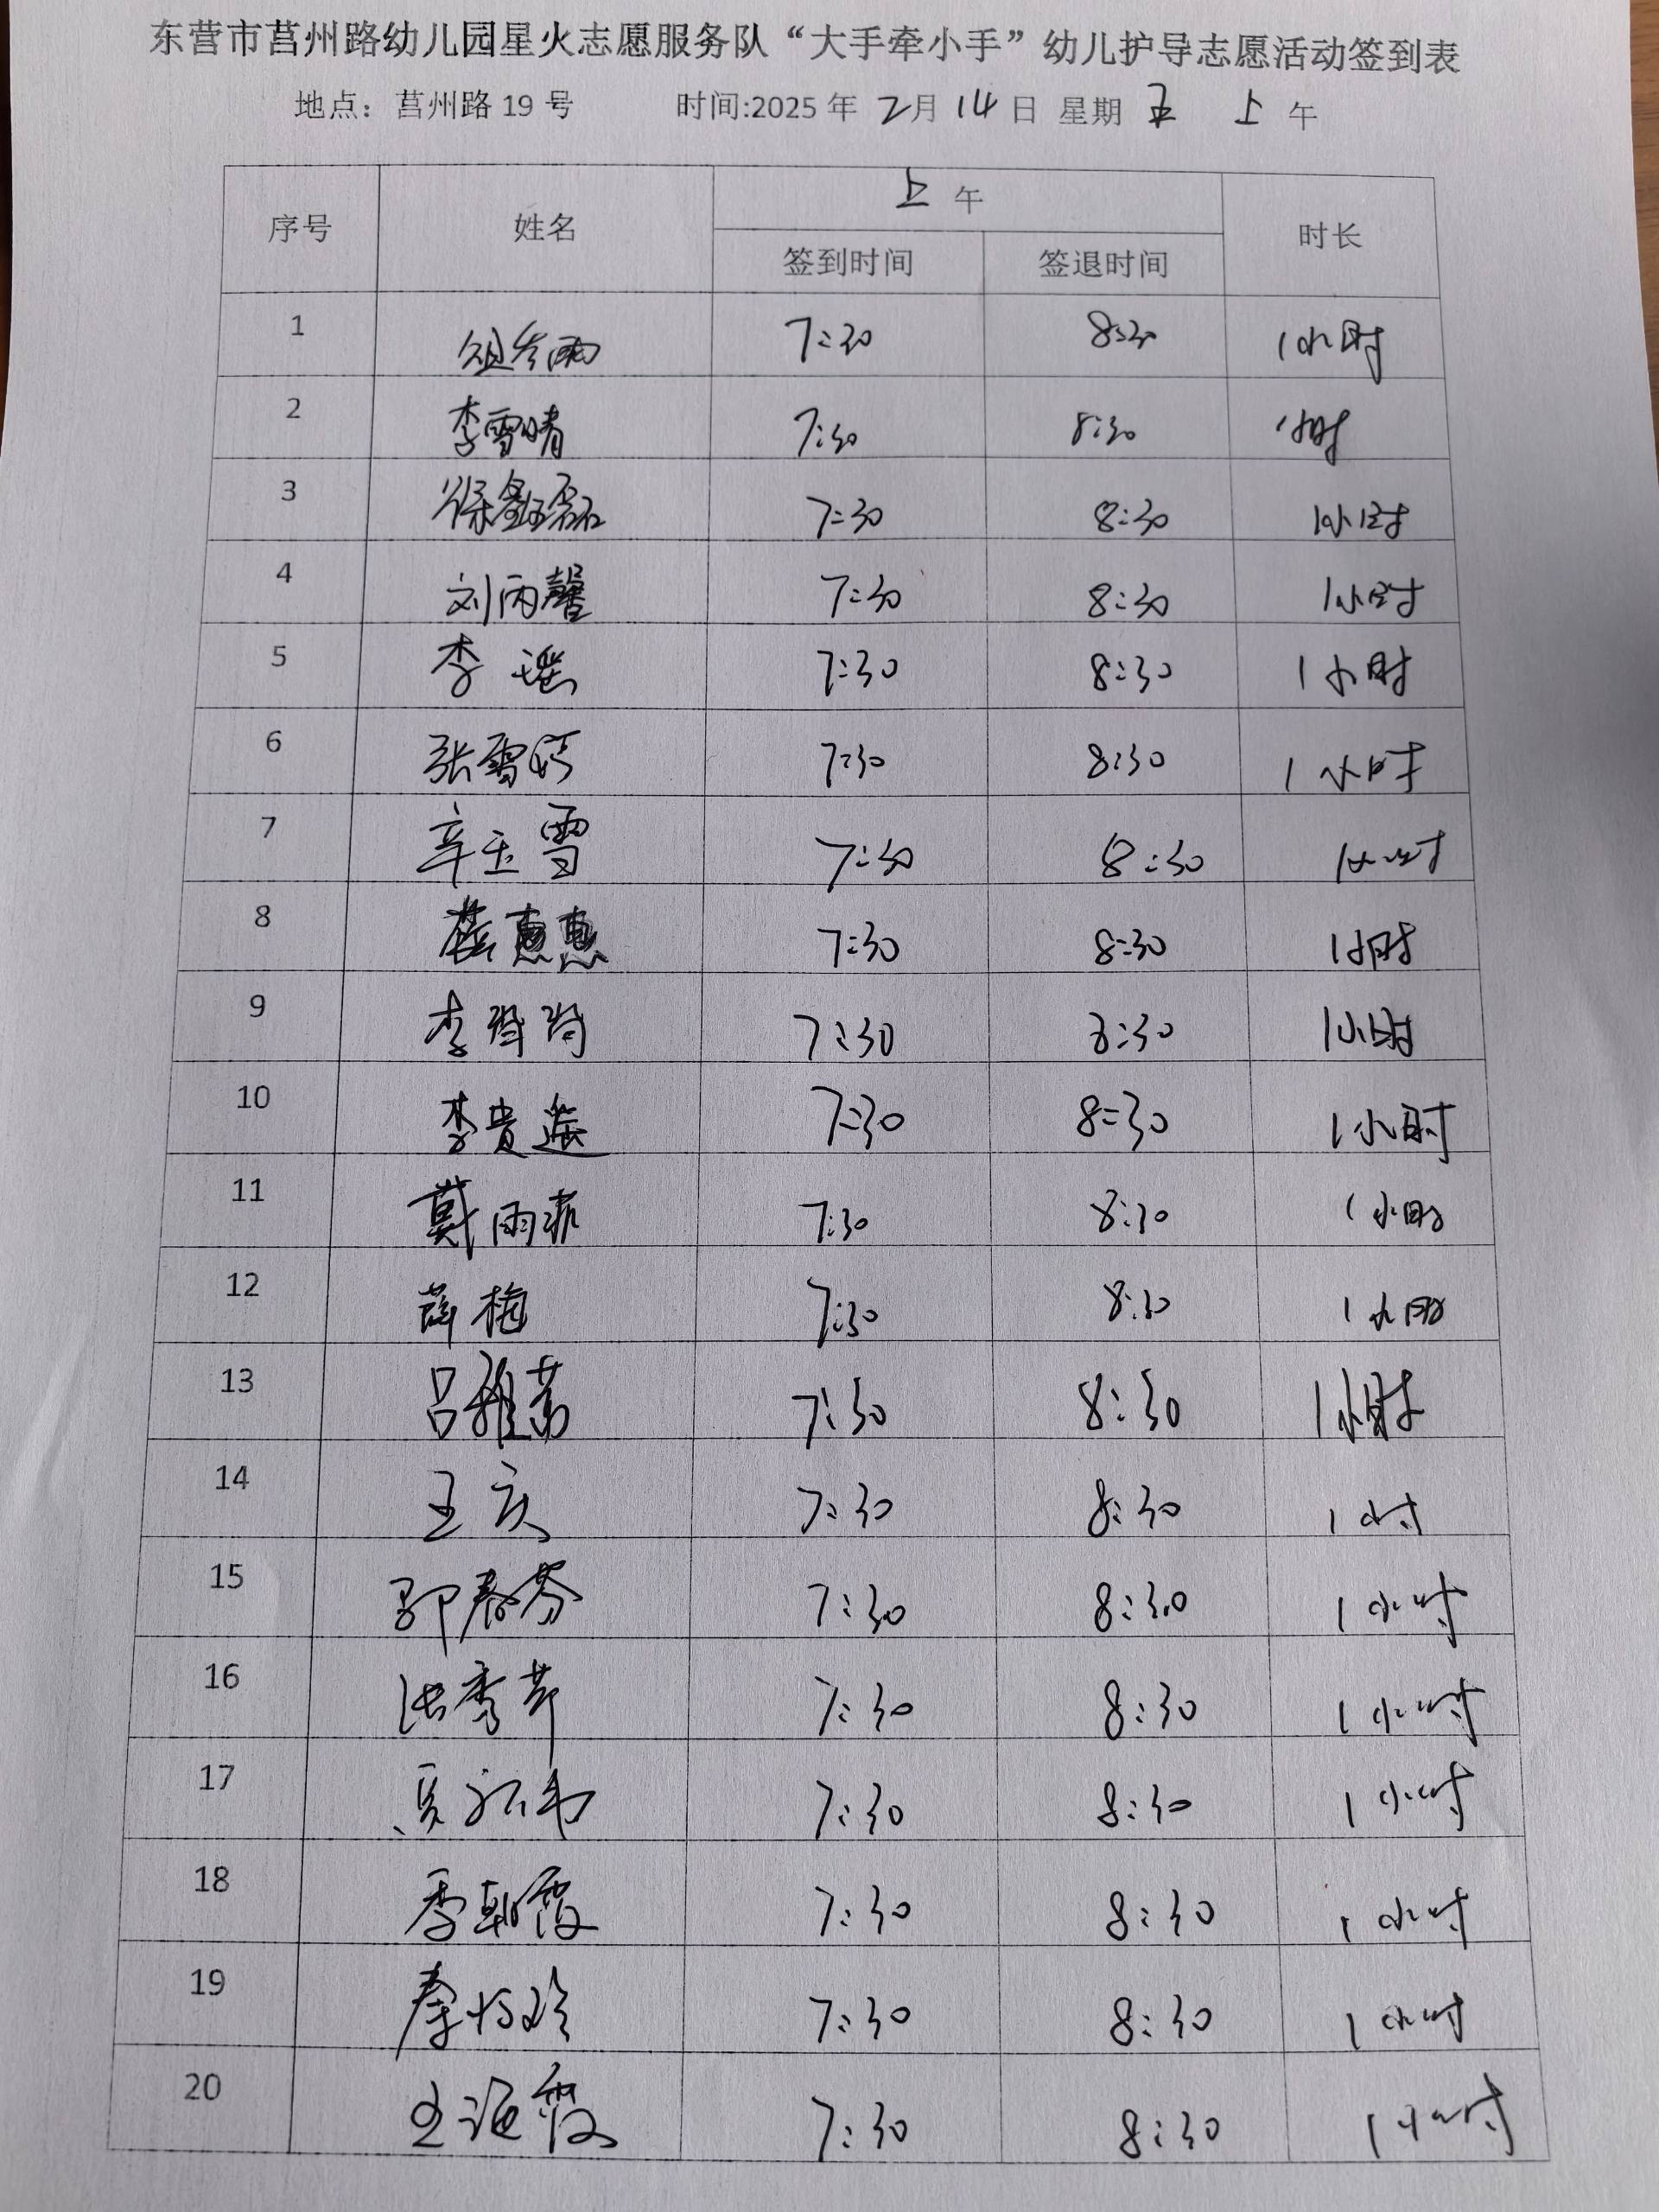 东营市莒州路幼儿园星火志愿服务队“大手牵小手”幼儿护导志愿活动签到表
地点：莒州路 19 号 时间:2025 年 2月 14 日 星期 五 上 午
序号 姓名 上 午 时长
签到时间 签退时间
1 7:30 8:30 1小时
2 李雪晴 7:30 8:30 1小时
3 徐鑫磊 7:30 8:30 1小时
4 刘雨馨 7:30 8:30 1小时
5 李瑶 7:30 8:30 1小时
6 张雪 7:30 8:30 1小时
7 辛玉雪 7:30 8:30 1小时
8 惠惠 7:30 8:30 1小时
9 李 7:30 8:30 1小时
10 李贵莲 7:30 8:30 1小时
11 戴雨菲 7:30 8:30 1小时
12 薛梅 7:30 8:30 1小时
13 吕雅茹 7:30 8:30 1小时
14 王庆 7:30 8:30 1小时
15 郭春芬 7:30 8:30 1小时
16 秀芹 7:30 8:30 1小时
17 7:30 8:30 1小时
18 季朝霞 7:30 8:30 1小时
19 秦玲 7:30 8:30 1小时
20 王海霞 7:30 8:30 1小时